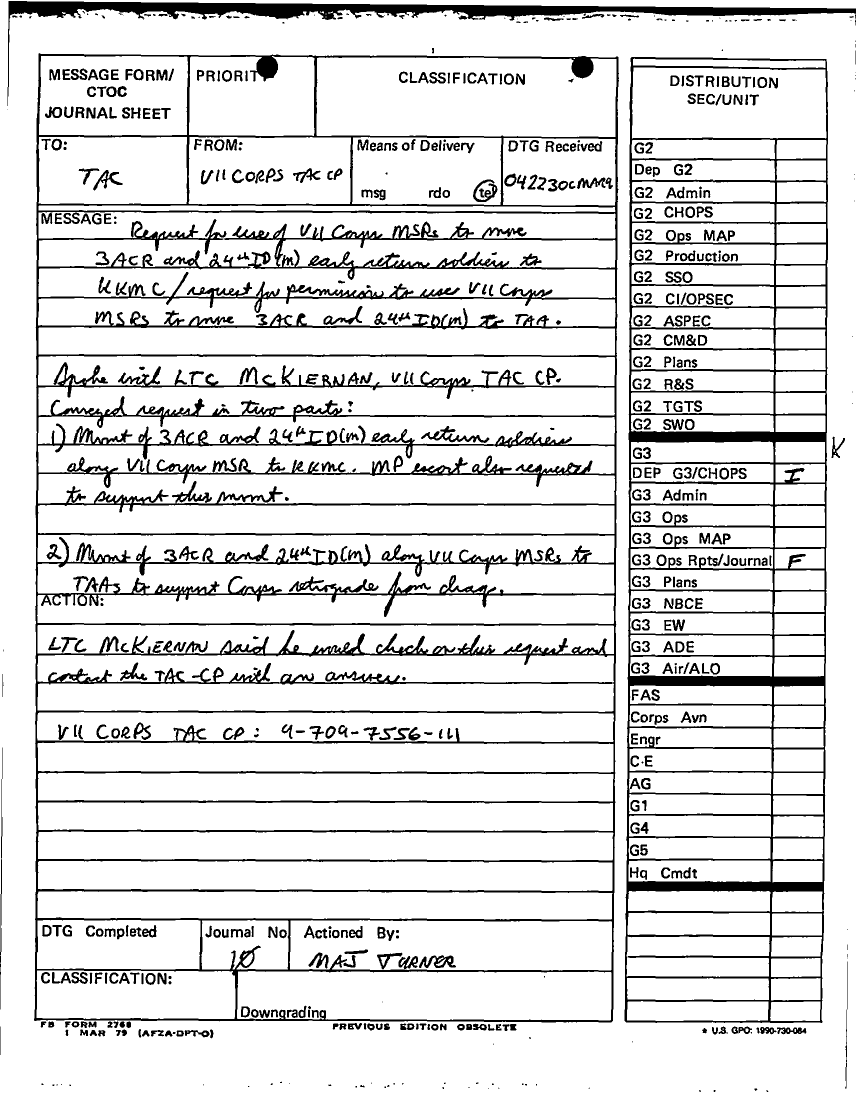 MESSAGE FORM/
CTOC
JOURNAL SHEET
PRIORITY
CLASSIFICATION
TO:
TAC
FROM:
VII CORPS TAC CP
Means of Delivery
msg rdo tel
DTG Received
042230CMAR91
MESSAGE:
Request for use of VII Corps MSRs to move
3ACR and 24th ID(M) early return soldiers to
KKMC/request for permission to use VII Corps
MSRs to move 3ACR and 24th ID(M) to TAA.
Spoke with LTC McKIERNAN, VII Corps TAC CP.
Conveyed request in two parts:
1) Mvmt of 3ACR and 24th ID(M) early return soldiers
along VII Corps MSR to KKMC. MP escort also requested
to support this mvmt.
2) Mvmt of 3ACR and 24th ID(M) along VII Corps MSRs to
TAAs to support Corps retrograde from Iraq.
ACTION:
LTC McKIERNAN said he would check on this request and
contact the TAC-CP with an answer.
VII CORPS TAC CP: 9-709-7556-111
DTG Completed
Journal No
10
Actioned By:
MAJ TURNER
CLASSIFICATION:
Downgrading
FB FORM 2768
1 MAR 79 (AFZA-DPT-O)
PREVIOUS EDITION OBSOLETE
DISTRIBUTION
SEC/UNIT
G2
Dep G2
G2 Admin
G2 CHOPS
G2 Ops MAP
G2 Production
G2 SSO
G2 CI/OPSEC
G2 ASPEC
G2 CM&D
G2 Plans
G2 R&S
G2 TGTS
G2 SWO
G3
K
DEP G3/CHOPS I
G3 Admin
G3 Ops
G3 Ops MAP
G3 Ops Rpts/Journal F
G3 Plans
G3 NBCE
G3 EW
G3 ADE
G3 Air/ALO
FAS
Corps Avn
Engr
C-E
AG
G1
G4
G5
Hq Cmdt
* U.S. GPO: 1990-730-084